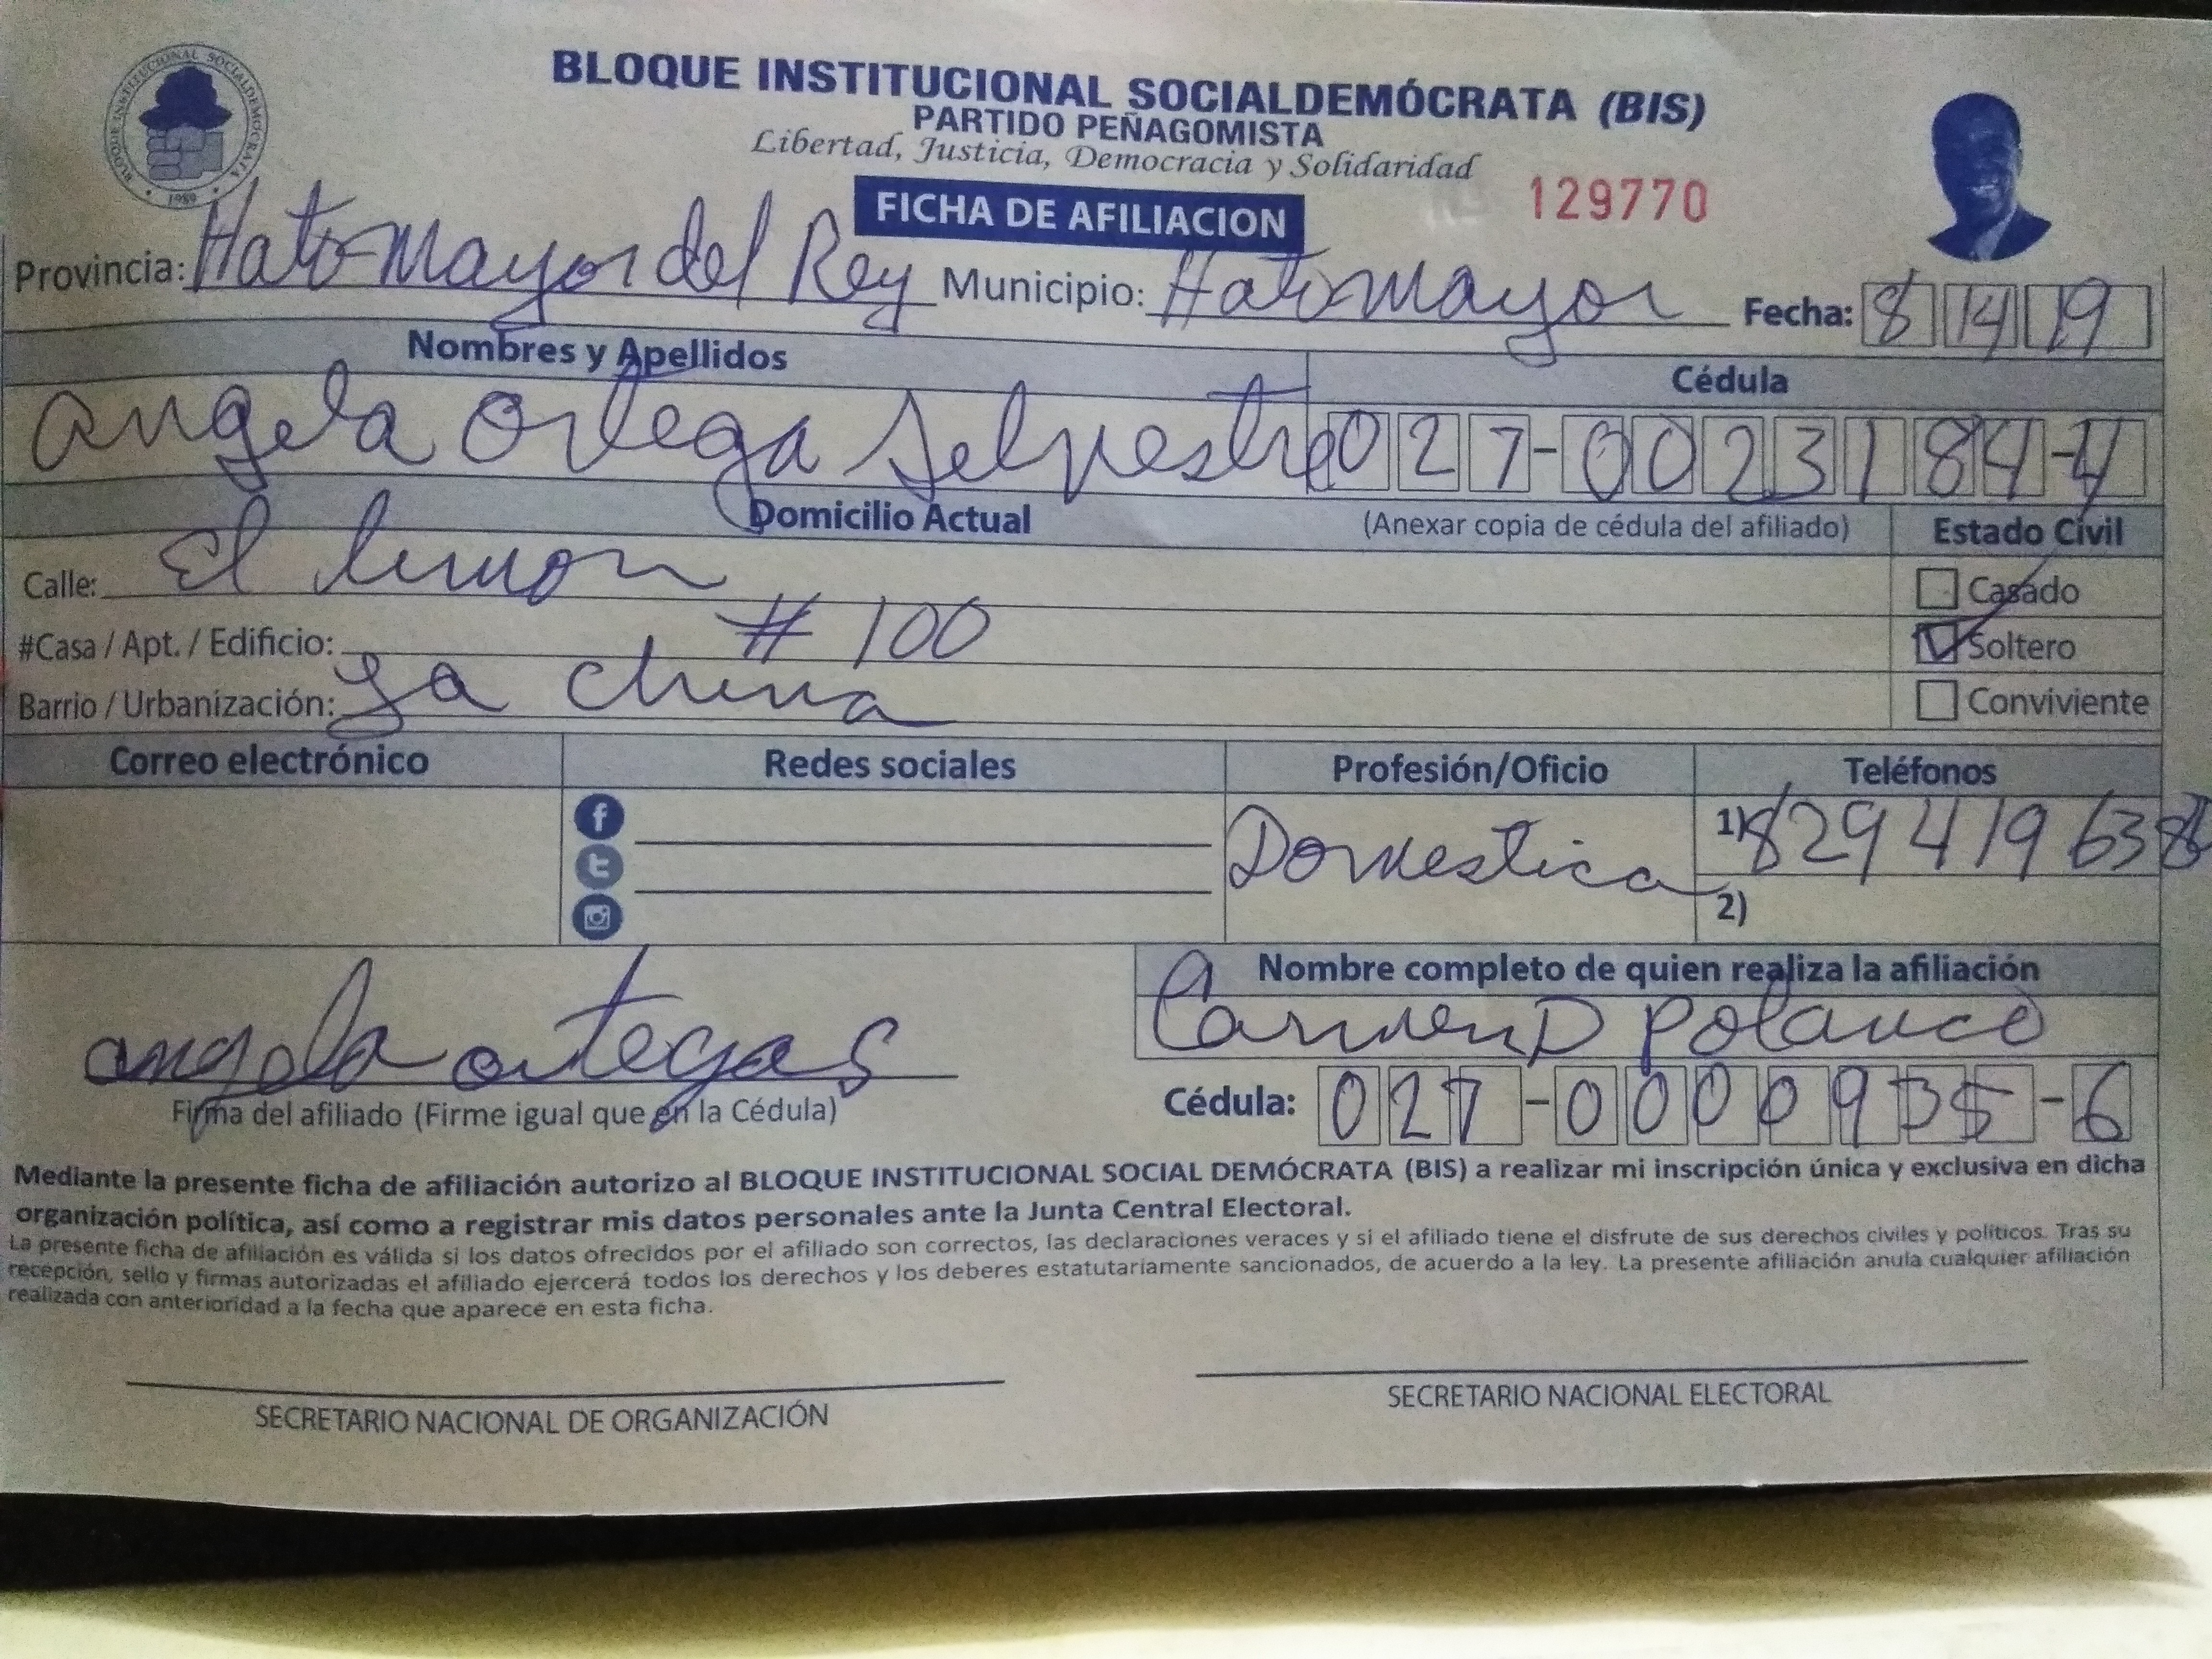 BLOQUE INSTITUCIONAL SOCIALDEMÓCRATA (BIS)
PARTIDO PEÑAGOMISTA
Libertad, Justicia, Democracia y Solidaridad
BLOQUE INSTITUCIONAL SOCIALDEMOCRATA
1989
FICHA DE AFILIACION
129770
Provincia: Hato Mayor del Rey Municipio: Hato mayor Fecha: 8 14 19
Nombres y Apellidos Cédula
Angela Ortega Selvestre 027-0023184-4
Domicilio Actual (Anexar copia de cédula del afiliado) Estado Civil
Calle: El limon Casado
#Casa / Apt. / Edificio: # 100 Soltero
Barrio / Urbanización: La china Conviviente
Correo electrónico Redes sociales Profesión/Oficio Teléfonos
Domestica 1) 829 419 638
2)
angela ortega S
Firma del afiliado (Firme igual que en la Cédula)
Nombre completo de quien realiza la afiliación
Carmen D Polanco
Cédula: 027-0000935-6
Mediante la presente ficha de afiliación autorizo al BLOQUE INSTITUCIONAL SOCIAL DEMÓCRATA (BIS) a realizar mi inscripción única y exclusiva en dicha
organización política, así como a registrar mis datos personales ante la Junta Central Electoral.
La presente ficha de afiliación es válida si los datos ofrecidos por el afiliado son correctos, las declaraciones veraces y si el afiliado tiene el disfrute de sus derechos civiles y políticos. Tras su
recepción, sello y firmas autorizadas el afiliado ejercerá todos los derechos y los deberes estatutariamente sancionados, de acuerdo a la ley. La presente afiliación anula cualquier afiliación
realizada con anterioridad a la fecha que aparece en esta ficha.
SECRETARIO NACIONAL DE ORGANIZACIÓN SECRETARIO NACIONAL ELECTORAL